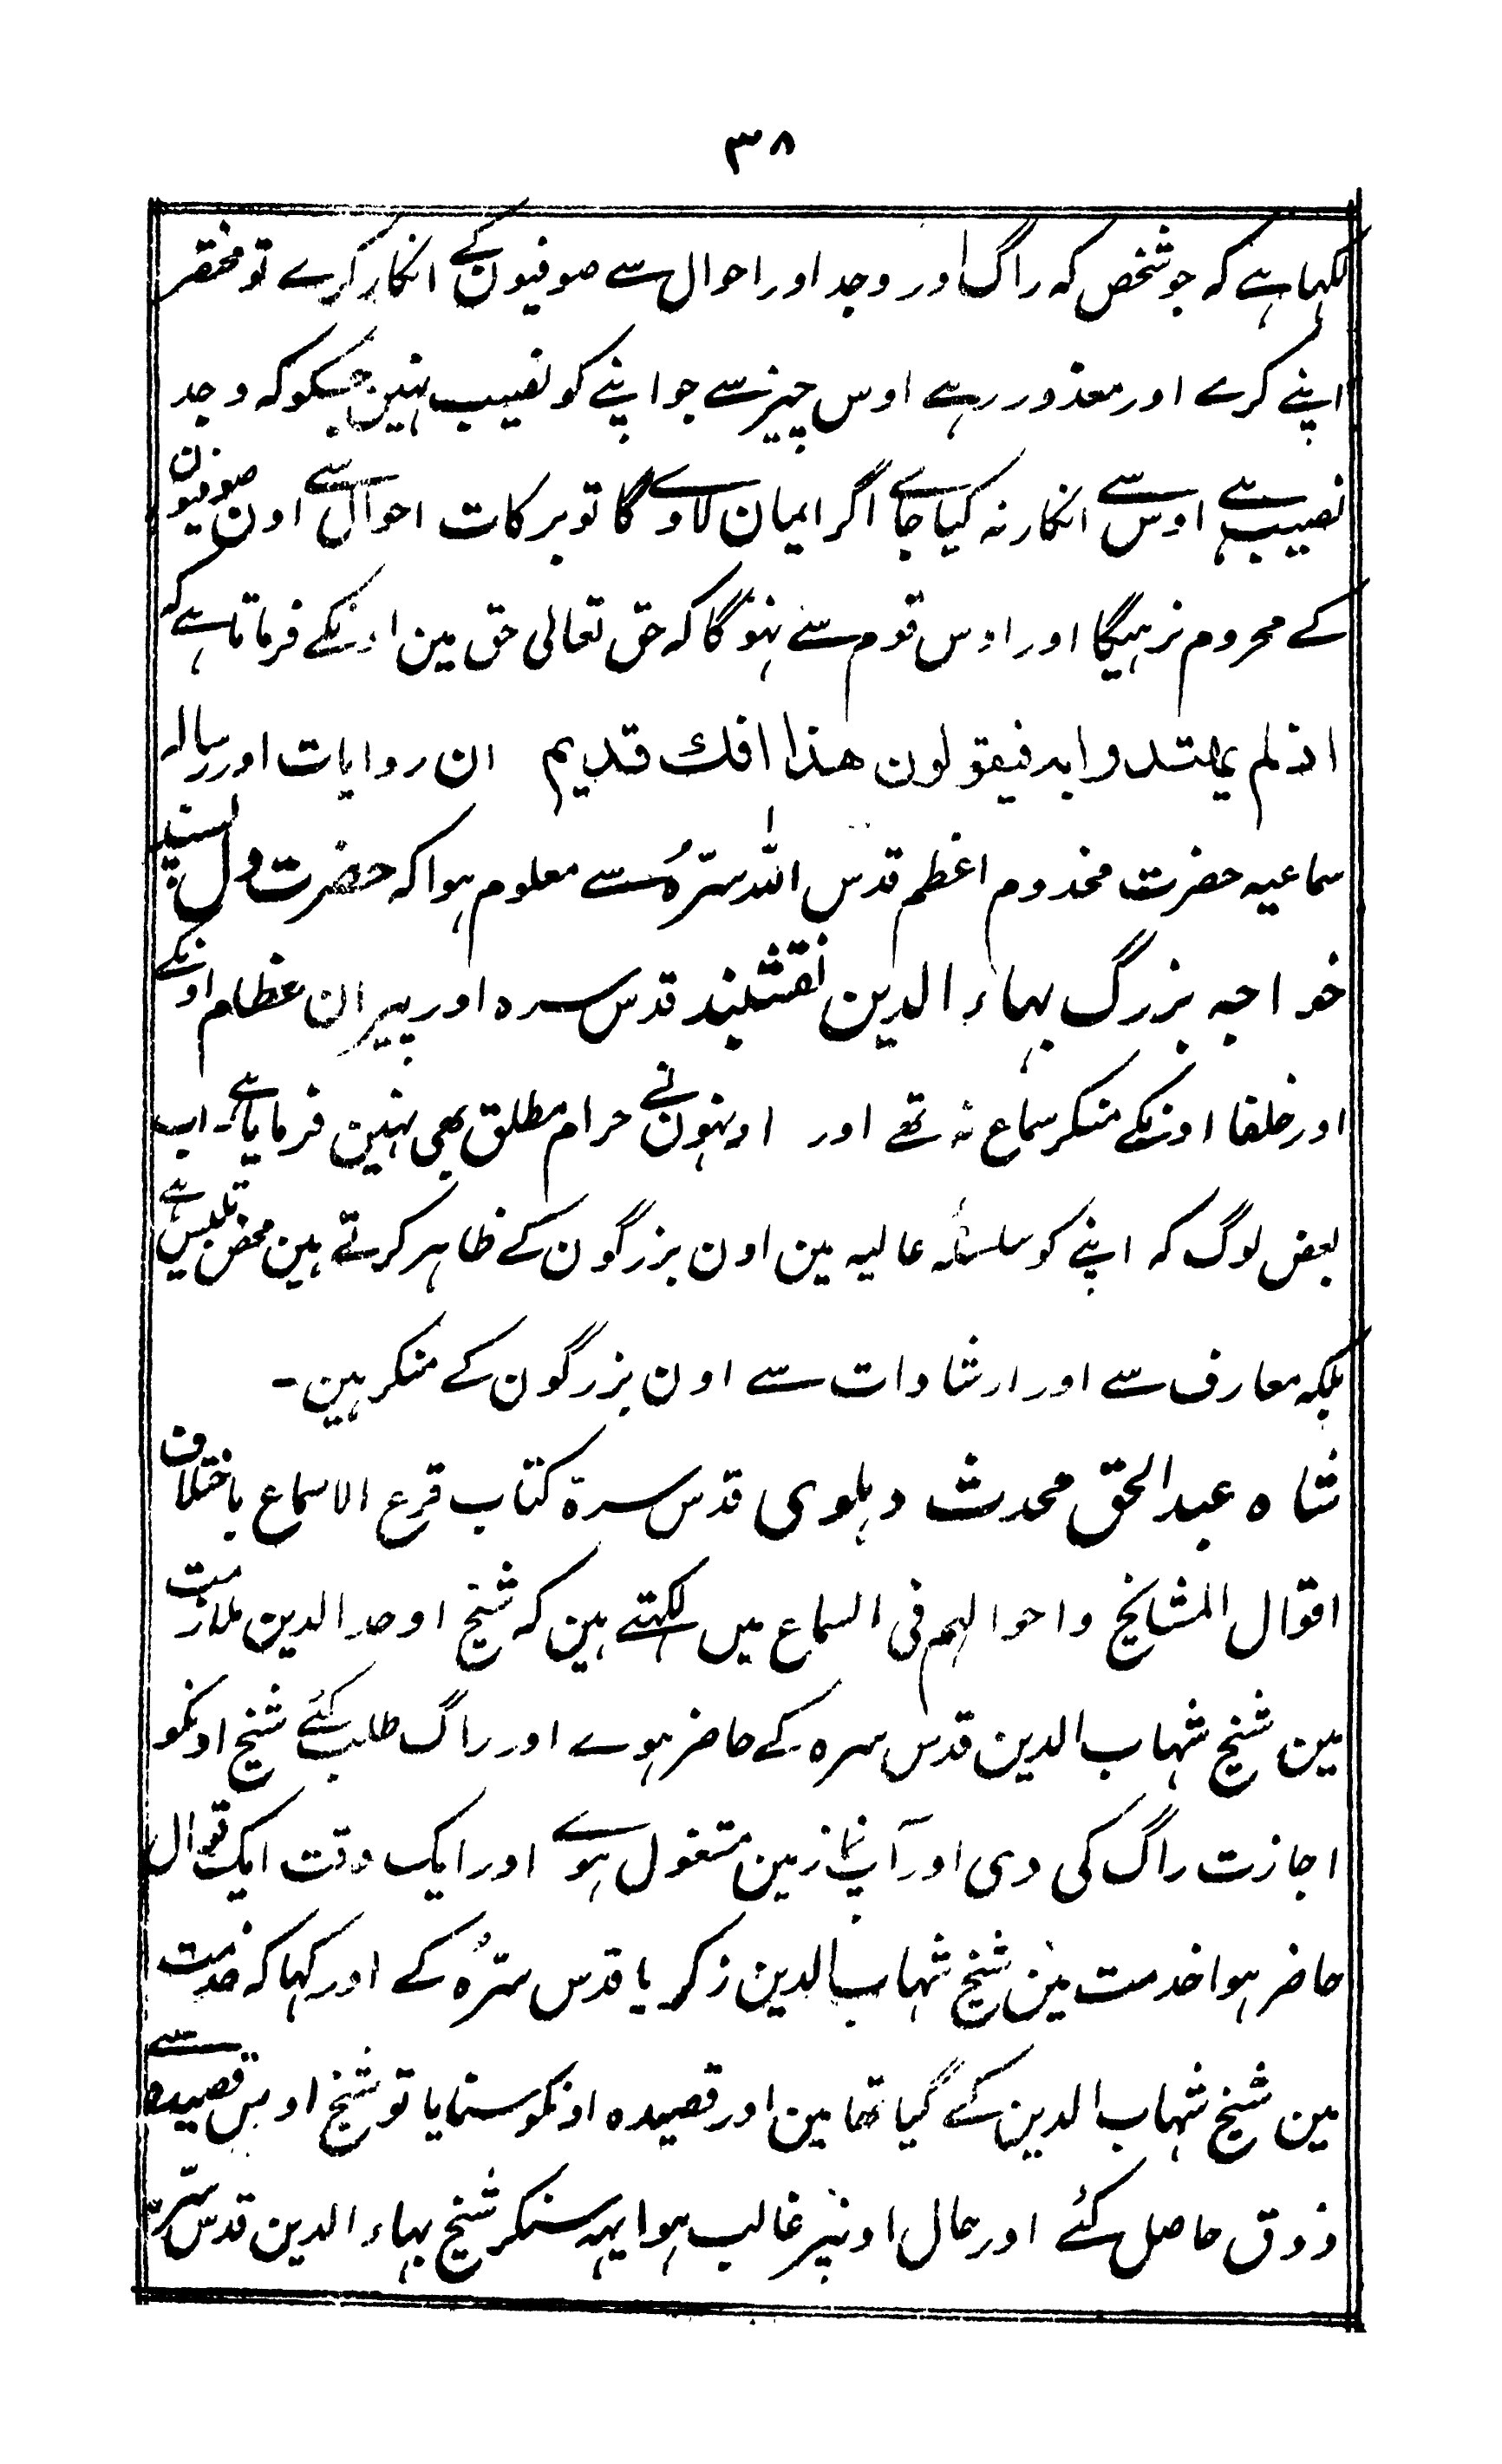 ۳۸
لکہا ہے کہ جو شخص کہ راگ اور وجد اور احوال سے صوفیون کے انکار کرے تو مختصر
اپنے کرے اور معذور رہے اوس چیز سے جو اپنے کو نصیب نہین جسکو کہ وجد
نصیب ہے اوس سے انکار نہ کیا جاے اگر ایمان لاوے گا تو برکات احوال سے اون صوفیون
کے محروم نرہیگا اور اوس قوم سے نہوگا کہ حق تعالی حق مین اونکے فرماتا ہے کہ
اذ لم یھتدوا بہ فیقولون ھذا افك قدیم ان روایات اور رسالہ
سماعیہ حضرت مخدوم اعظم قدس اللہ سرّہُ سے معلوم ہوا کہ حضرت دل پسند
خواجہ بزرگ بہاء الدین نقشبند قدس سرہ اور پیران عظام اونکے
اور خلفا اونکے منکر سماع نہ تھے اور اونہون نے حرام مطلق بھی نہین فرمایا ہے۔ اب
بعض لوگ کہ اپنے کو سلسلۂ عالیہ مین اون بزرگون کے ظاہر کرتے ہین محض تلبیس ہے
بلکہ معارف سے اور ارشادات سے اون بزرگون کے منکر ہین۔
شاہ عبدالحق محدث دہلوی قدس سرہ کتاب قرع الاسماع باختلاف
اقوال المشایخ واحوالہم فی السماع میں لکہتے ہین کہ شیخ اوحد الدین ملازمت
مین شیخ شہاب الدین قدس سرہ کے حاضر ہوے اور راگ طلب کئے شیخ اونکو
اجازت راگ کی دی اور آپ نماز مین مشغول ہوے اور ایک وقت ایک قوال
حاضر ہوا خدمت مین شیخ شہاب الدین زکریا قدس سرّہُ کے اور کہا کہ خدمت
مین شیخ شہاب الدین کے گیا تھا مین اور قصیدہ اونکو سنایا تو شیخ اوس قصیدہ سے
ذوق حاصل کئے اور حال اونپر غالب ہوا یہہ سنکر شیخ بہاء الدین قدس سرّہ